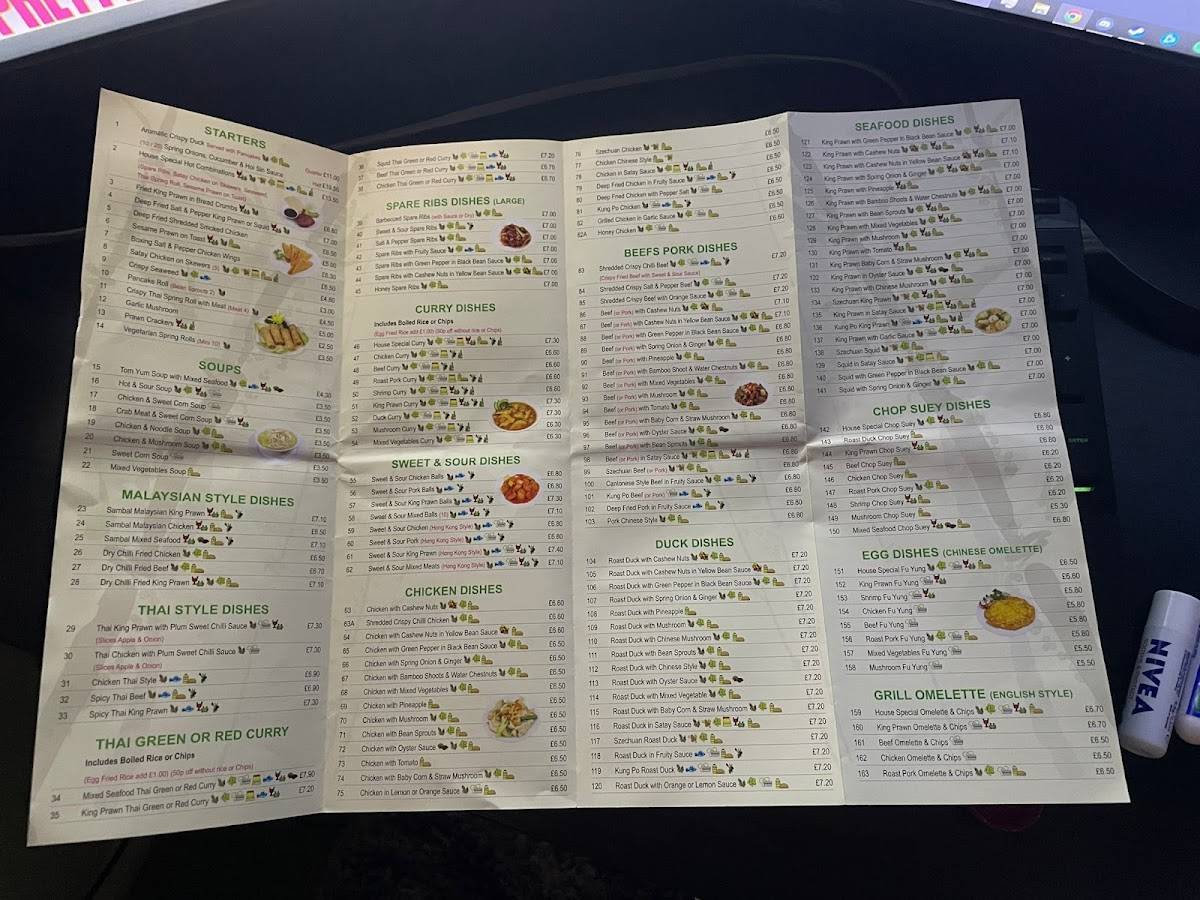 STARTERS
1 Aromatic Crispy Duck Served with Pancakes
(10 / 20) Spring Onions, Cucumber & Hoi Sin Sauce
Quarter £11.00
Half £19.50
2 House Special Hot Combinations £13.50
(Spare Ribs, Satay Chicken on Skewers, Seaweed,
Thai Spring Roll, Sesame Prawn on Toast)
3 Fried King Prawn in Bread Crumbs £6.80
4 Deep Fried Salt & Pepper King Prawn or Squid £7.00
5 Deep Fried Shredded Smoked Chicken
6 Deep Fried Salt & Pepper Chicken Wings
7 Sesame Prawn on Toast
8 Boxing Salt & Pepper Chicken Wings
9 Satay Chicken on Skewers (5)
10 Crispy Seaweed
11 Pancake Roll (Bean Sprouts 2)
12 Crispy Thai Spring Roll with Meat (Meat 4)
Garlic Mushroom
13 Prawn Crackers £2.50
14 Vegetarian Spring Rolls (Mini 10) £3.50
SOUPS
15 Tom Yum Soup with Mixed Seafood £4.30
16 Hot & Sour Soup £3.50
17 Chicken & Sweet Corn Soup £3.50
18 Crab Meat & Sweet Corn Soup £3.50
19 Chicken & Noodle Soup £3.50
20 Chicken & Mushroom Soup £3.50
21 Sweet Corn Soup £3.50
22 Mixed Vegetables Soup £3.50
MALAYSIAN STYLE DISHES
23 Sambal Malaysian King Prawn £7.10
24 Sambal Malaysian Chicken £6.50
25 Sambal Mixed Seafood £7.10
26 Dry Chilli Fried Chicken £6.50
27 Dry Chilli Fried Beef £6.70
28 Dry Chilli Fried King Prawn £7.10
THAI STYLE DISHES
29 Thai King Prawn with Plum Sweet Chilli Sauce £7.30
(Slices Apple & Onion)
30 Thai Chicken with Plum Sweet Chilli Sauce £7.30
(Slices Apple & Onion)
31 Chicken Thai Style £6.90
32 Spicy Thai Beef £6.90
33 Spicy Thai King Prawn £7.30
THAI GREEN OR RED CURRY
Includes Boiled Rice or Chips
(Egg Fried Rice add £1.00) (50p off without rice or Chips)
34 Mixed Seafood Thai Green or Red Curry £7.90
35 King Prawn Thai Green or Red Curry £7.20
36 Squid Thai Green or Red Curry £7.20
Beef Thai Green or Red Curry £6.70
38 Chicken Thai Green or Red Curry £6.70
SPARE RIBS DISHES (LARGE)
Barbecued Spare Ribs (with Sauce or Dry) £7.00
40 Sweet & Sour Spare Ribs £7.00
41 Salt & Pepper Spare Ribs £7.00
42 Spare Ribs with Fruity Sauce £7.00
43 Spare Ribs with Green Pepper in Black Bean Sauce £7.00
44 Spare Ribs with Cashew Nuts in Yellow Bean Sauce £7.00
45 Honey Spare Ribs £7.00
CURRY DISHES
Includes Boiled Rice or Chips
(Egg Fried Rice add £1.00) (50p off without rice or Chips)
46 House Special Curry £7.30
47 Chicken Curry £6.60
48 Beef Curry £6.60
49 Roast Pork Curry £6.60
50 Shrimp Curry £6.60
51 King Prawn Curry £7.30
52 Duck Curry £7.30
53 Mushroom Curry £6.30
54 Mixed Vegetables Curry £6.30
SWEET & SOUR DISHES
55 Sweet & Sour Chicken Balls £6.80
56 Sweet & Sour Pork Balls £6.80
57 Sweet & Sour King Prawn Balls £7.30
58 Sweet & Sour Mixed Balls (10) £7.10
59 Sweet & Sour Chicken (Hong Kong Style) £6.80
60 Sweet & Sour Pork (Hong Kong Style) £6.80
61 Sweet & Sour King Prawn (Hong Kong Style) £7.40
62 Sweet & Sour Mixed Meats (Hong Kong Style) £7.10
CHICKEN DISHES
63 Chicken with Cashew Nuts £6.60
63A Shredded Crispy Chilli Chicken £6.60
64 Chicken with Cashew Nuts in Yellow Bean Sauce £6.60
65 Chicken with Green Pepper in Black Bean Sauce £6.50
66 Chicken with Spring Onion & Ginger £6.50
67 Chicken with Bamboo Shoots & Water Chestnuts £6.50
68 Chicken with Mixed Vegetables £6.50
69 Chicken with Pineapple £6.50
70 Chicken with Mushroom £6.50
71 Chicken with Bean Sprouts £6.50
72 Chicken with Oyster Sauce £6.50
73 Chicken with Tomato £6.50
74 Chicken with Baby Corn & Straw Mushroom £6.50
75 Chicken in Lemon or Orange Sauce £6.50
76 Szechuan Chicken £6.50
77 Chicken Chinese Style £6.50
78 Chicken in Satay Sauce £6.50
79 Deep Fried Chicken in Fruity Sauce £6.50
80 Deep Fried Chicken with Pepper Salt £6.50
81 Kung Po Chicken £6.50
82 Grilled Chicken in Garlic Sauce £6.50
82A Honey Chicken £6.60
BEEFS PORK DISHES
83 Shredded Crispy Chilli Beef £7.20
(Crispy Fried Beef with Sweet & Sour Sauce)
84 Shredded Crispy Salt & Pepper Beef £7.20
85 Shredded Crispy Beef with Orange Sauce £7.20
86 Beef (or Pork) with Cashew Nuts £7.10
87 Beef (or Pork) with Cashew Nuts in Yellow Bean Sauce £7.10
88 Beef (or Pork) with Green Pepper in Black Bean Sauce £6.80
89 Beef (or Pork) with Spring Onion & Ginger £6.80
90 Beef (or Pork) with Pineapple £6.80
91 Beef (or Pork) with Bamboo Shoot & Water Chestnuts £6.80
92 Beef (or Pork) with Mixed Vegetables £6.80
93 Beef (or Pork) with Mushroom £6.80
94 Beef (or Pork) with Tomato £6.80
95 Beef (or Pork) with Baby Corn & Straw Mushroom £6.80
96 Beef (or Pork) with Oyster Sauce £6.80
97 Beef (or Pork) with Bean Sprouts £6.80
98 Beef (or Pork) in Satay Sauce £6.80
99 Szechuan Beef (or Pork) £6.80
100 Cantonese Style Beef in Fruity Sauce £6.80
101 Kung Po Beef (or Pork) £6.80
102 Deep Fried Pork in Fruity Sauce £6.80
103 Pork Chinese Style £6.80
DUCK DISHES
104 Roast Duck with Cashew Nuts £7.20
105 Roast Duck with Cashew Nuts in Yellow Bean Sauce £7.20
106 Roast Duck with Green Pepper in Black Bean Sauce £7.20
107 Roast Duck with Spring Onion & Ginger £7.20
108 Roast Duck with Pineapple £7.20
109 Roast Duck with Mushroom £7.20
110 Roast Duck with Chinese Mushroom £7.20
111 Roast Duck with Bean Sprouts £7.20
112 Roast Duck with Chinese Style £7.20
113 Roast Duck with Oyster Sauce £7.20
114 Roast Duck with Mixed Vegetable £7.20
115 Roast Duck with Baby Corn & Straw Mushroom £7.20
116 Roast Duck in Satay Sauce £7.20
117 Szechuan Roast Duck £7.20
118 Roast Duck in Fruity Sauce £7.20
119 Kung Po Roast Duck £7.20
120 Roast Duck with Orange or Lemon Sauce £7.20
SEAFOOD DISHES
121 King Prawn with Green Pepper in Black Bean Sauce £7.00
122 King Prawn with Cashew Nuts £7.10
123 King Prawn with Cashew Nuts in Yellow Bean Sauce £7.10
124 King Prawn with Spring Onion & Ginger £7.00
125 King Prawn with Pineapple £7.00
126 King Prawn with Bamboo Shoots & Water Chestnuts £7.00
127 King Prawn with Bean Sprouts £7.00
128 King Prawn with Mixed Vegetables £7.00
129 King Prawn with Mushroom £7.00
130 King Prawn with Tomato £7.00
131 King Prawn Baby Corn & Straw Mushroom £7.00
132 King Prawn in Oyster Sauce £7.00
133 King Prawn with Chinese Mushroom £7.00
134 Szechuan King Prawn £7.00
135 King Prawn in Satay Sauce £7.00
136 Kung Po King Prawn £7.00
137 King Prawn with Garlic Sauce £7.00
138 Szechuan Squid £7.00
139 Squid in Satay Sauce £7.00
140 Squid with Green Pepper in Black Bean Sauce £7.00
141 Squid with Spring Onion & Ginger £7.00
CHOP SUEY DISHES
142 House Special Chop Suey £6.80
143 Roast Duck Chop Suey £6.80
144 King Prawn Chop Suey £6.80
145 Beef Chop Suey £6.20
146 Chicken Chop Suey £6.20
147 Roast Pork Chop Suey £6.20
148 Shrimp Chop Suey £6.20
149 Mushroom Chop Suey £5.30
150 Mixed Seafood Chop Suey £6.80
EGG DISHES (CHINESE OMELETTE)
151 House Special Fu Yung £6.50
152 King Prawn Fu Yung £6.50
153 Shrimp Fu Yung £5.80
154 Chicken Fu Yung £5.80
155 Beef Fu Yung £5.80
156 Roast Pork Fu Yung £5.80
157 Mixed Vegetables Fu Yung £5.50
158 Mushroom Fu Yung £5.50
GRILL OMELETTE (ENGLISH STYLE)
159 House Special Omelette & Chips £6.70
160 King Prawn Omelette & Chips £6.70
161 Beef Omelette & Chips £6.50
162 Chicken Omelette & Chips £6.50
163 Roast Pork Omelette & Chips £6.50
NIVEA